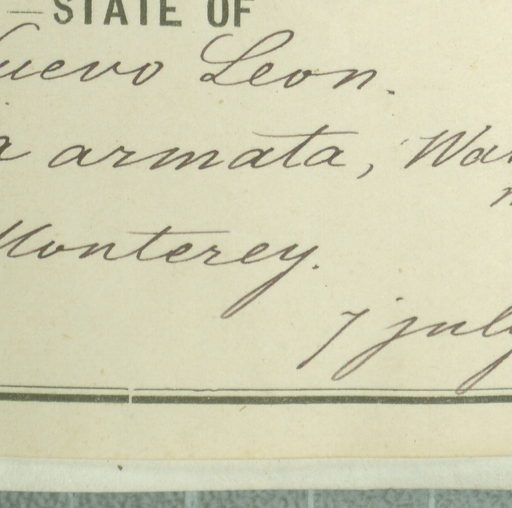 STATE OF
uevo Leon.
a armata, Wat
Monterey.
7 july